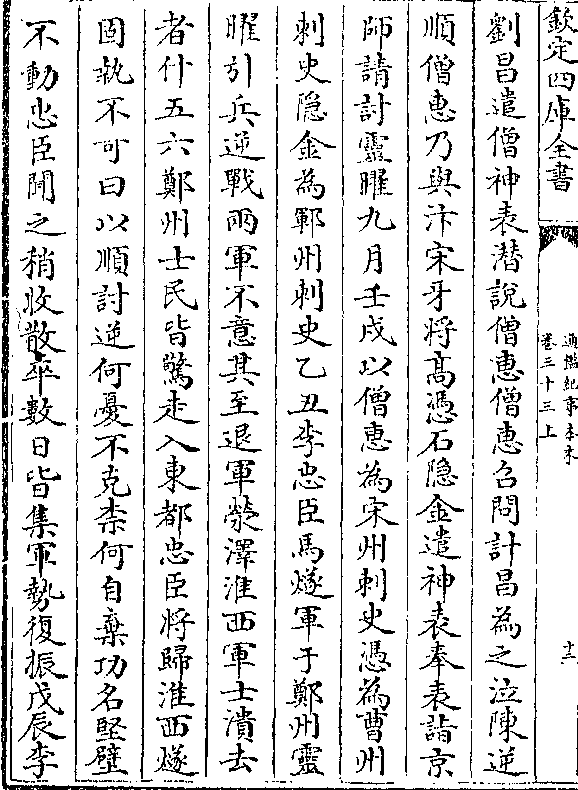 欽定四庫全書
通鑑紀事本末
卷三十三上
十二
劉昌遣僧神表潜說僧惠僧惠召問計昌為之泣陳逆
順僧惠乃與汴宋牙將髙憑石隐金遣神表奉表詣京
師請討靈曜九月壬戌以僧惠為宋州刺史憑為曹州
刺史隐金為鄆州刺史乙丑李忠臣馬燧軍于鄭州靈
曜引兵逆戰兩軍不意其至退軍滎澤淮西軍士潰去
者什五六鄭州士民皆驚走入東都忠臣將歸淮西燧
固執不可曰以順討逆何憂不克柰何自棄功名堅壁
不動忠臣聞之稍收散卒數日皆集軍勢復振戊辰李